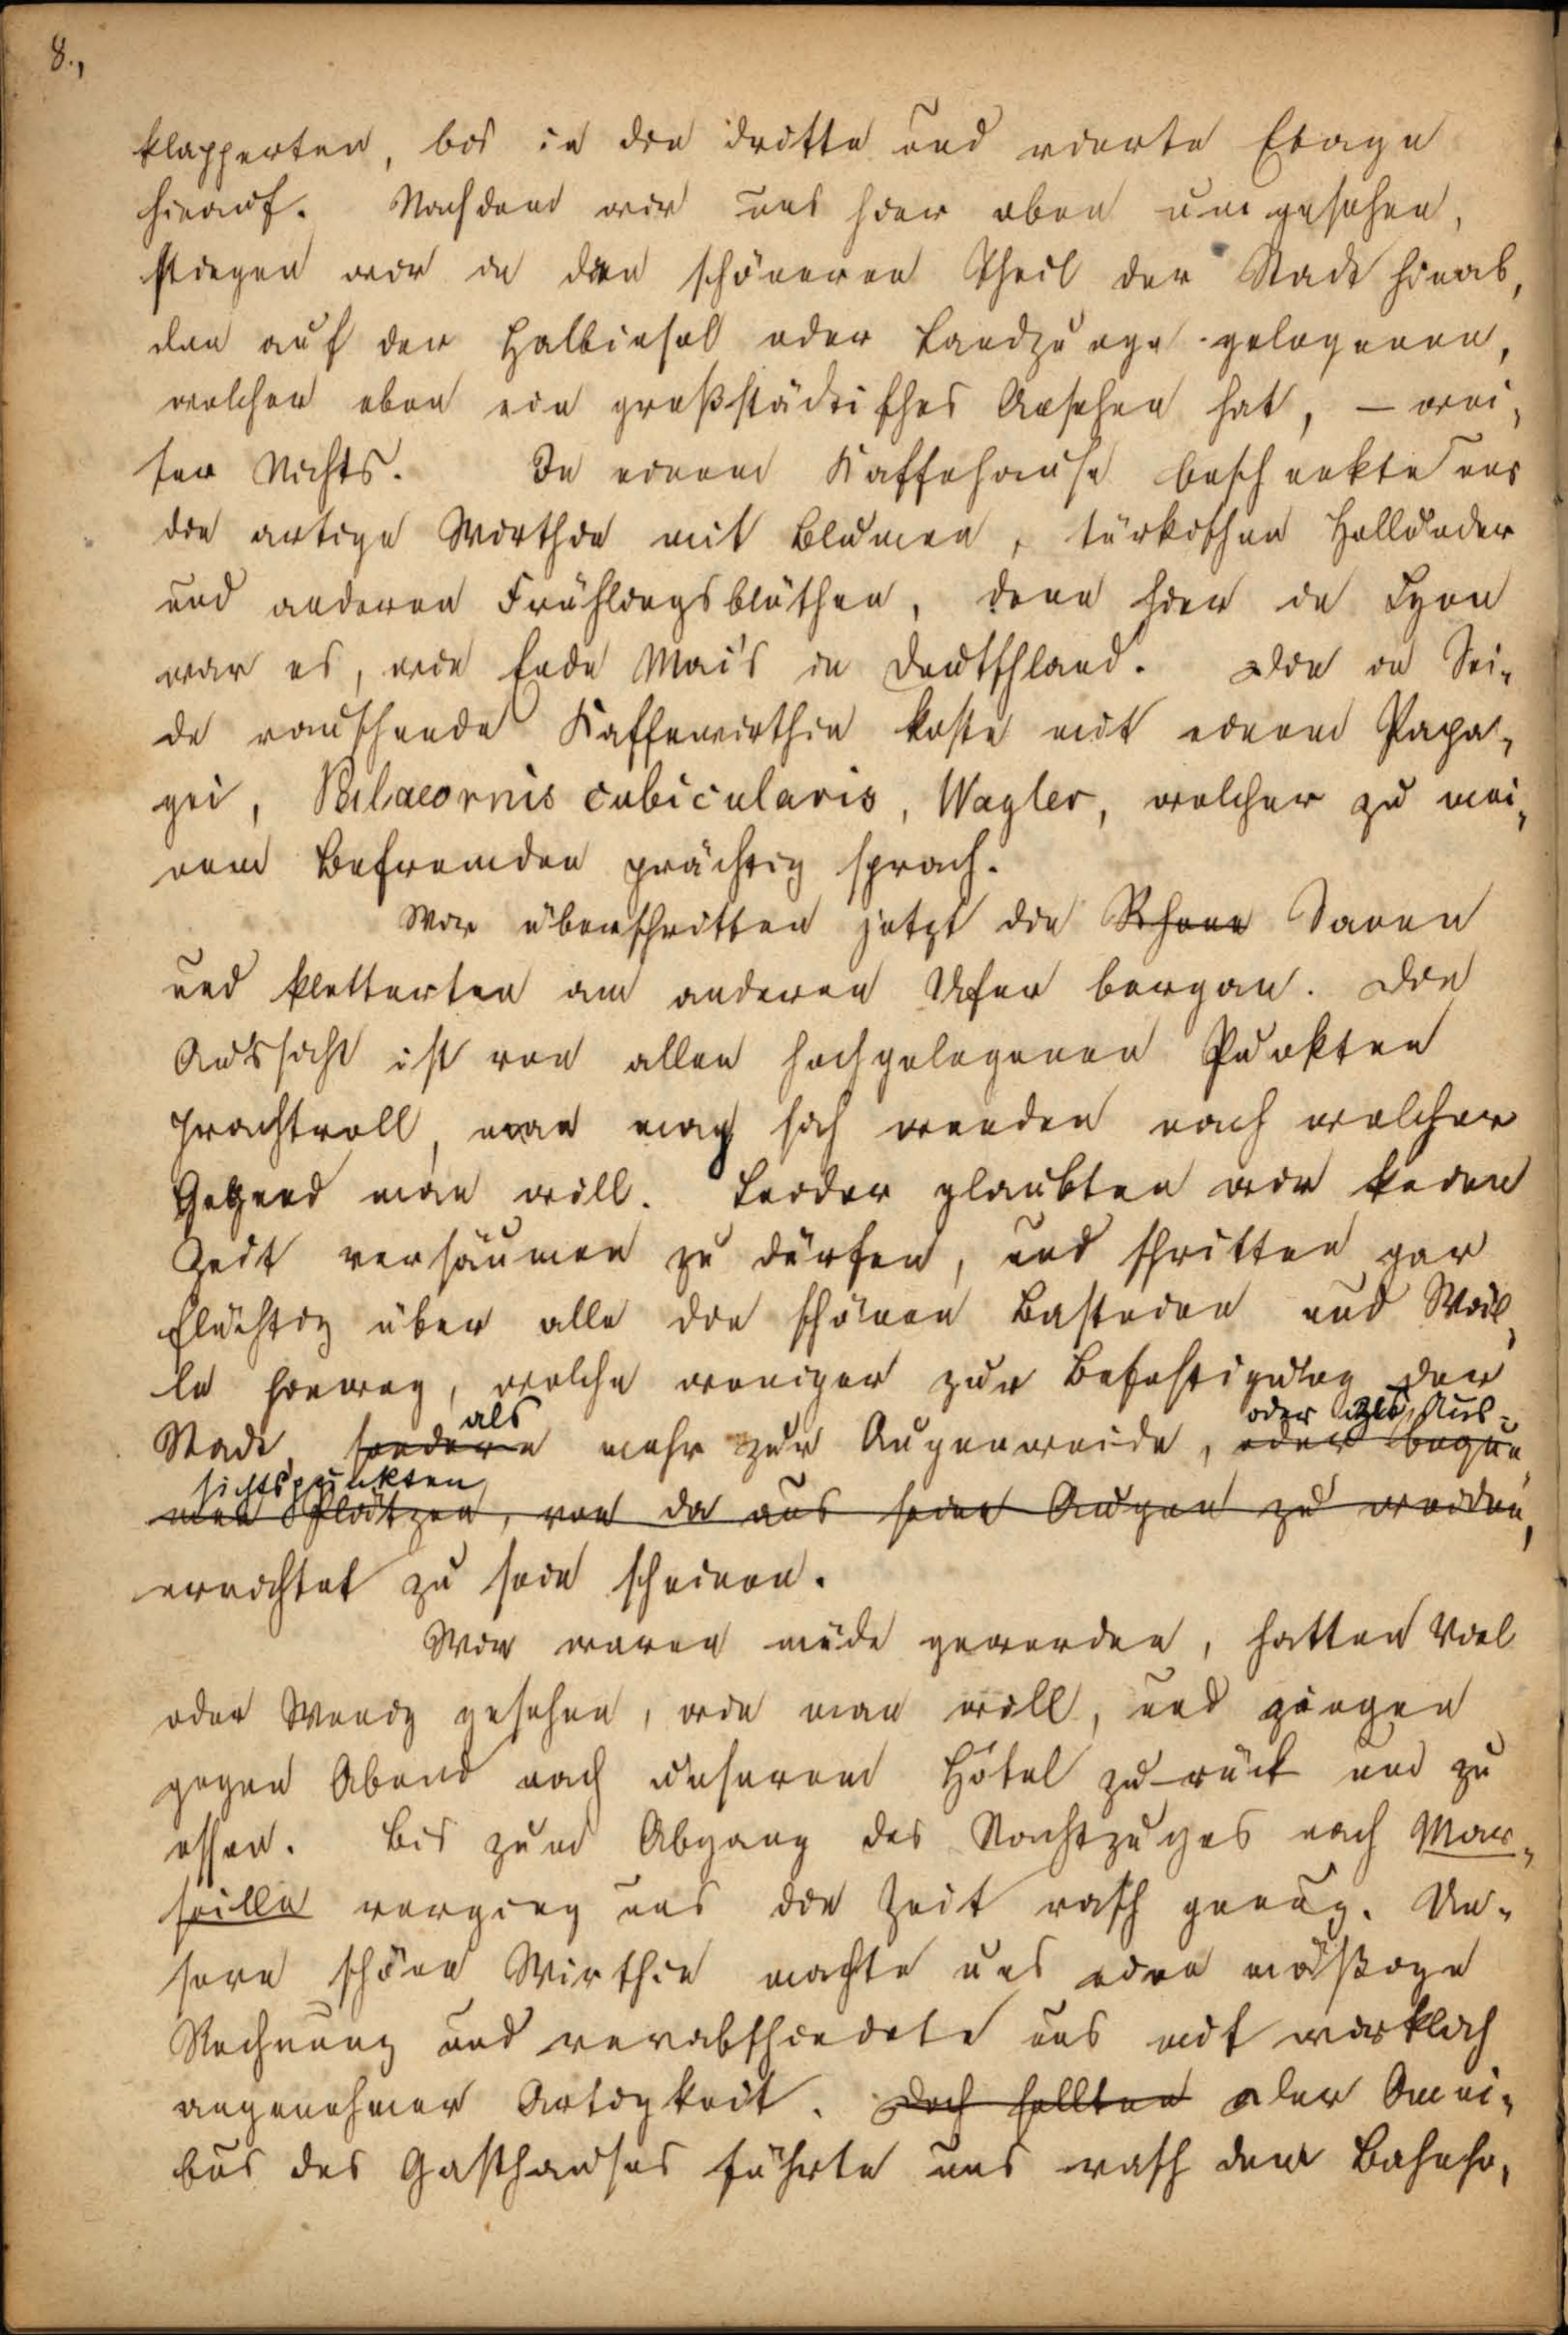 8.,
klapperten, bis in die dritte und vierte Etage
hinauf. Nachdem wir uns hier oben umgesehen,
stiegen wir in den schöneren Theil der Stadt hinab,
den auf der Halbinsel oder Landzunge gelegenen,
welcher eben ein großstädtisches Ansehen hat, – wei-
ter Nichts. In einem Kaffehause beschenkte uns
die artige Wirthin mit Blumen, türkischen Hollunder
und anderen Frühlingsblüthen, denn hier in Lyon
war es, wie Ende Mai's in Deutschland. Die in Sei-
de rauschende Kaffewirthin koste mit einem Papa-
gei, Palaeornis cubicularis, Wagler, welcher zu mei-
nem Befremden prächtig sprach.
Wir überschritten jetzt die Rhone Saone
und kletterten am anderen Ufer bergan. Die
Aussicht ist von allen hochgelegenen Punkten
prachtvoll, man mag sich wenden nach welcher
Gegend man will. Leider glaubten wir keine
Zeit versäumen zu dürfen, und schritten gar
flüchtig über alle die schönen Basteien und Wäl-
le hinweg, welche weniger zur Befestigung der
Stadt, sondern als mehr zur Augenweide, oder beque- oder als Aus-
men Plätzen, von da aus seine Augen zu weiden, sichtspunkten
errichtet zu sein scheinen.
Wir waren müde geworden, hatten Viel
oder Wenig gesehen, wie man will, und gingen
gegen Abend nach unserem Hôtel zurück um zu
essen. Bis zum Abgang des Nachtzuges nach Mar-
seille verging uns die Zeit rasch genug. Un-
sere schöne Wirthin machte uns eine mäßige
Rechnung und verabschiedete uns mit wirklich
angenehmer Artigkeit. Doch sollten Der Omni-
bus des Gasthauses führte uns rasch dem Bahnho-